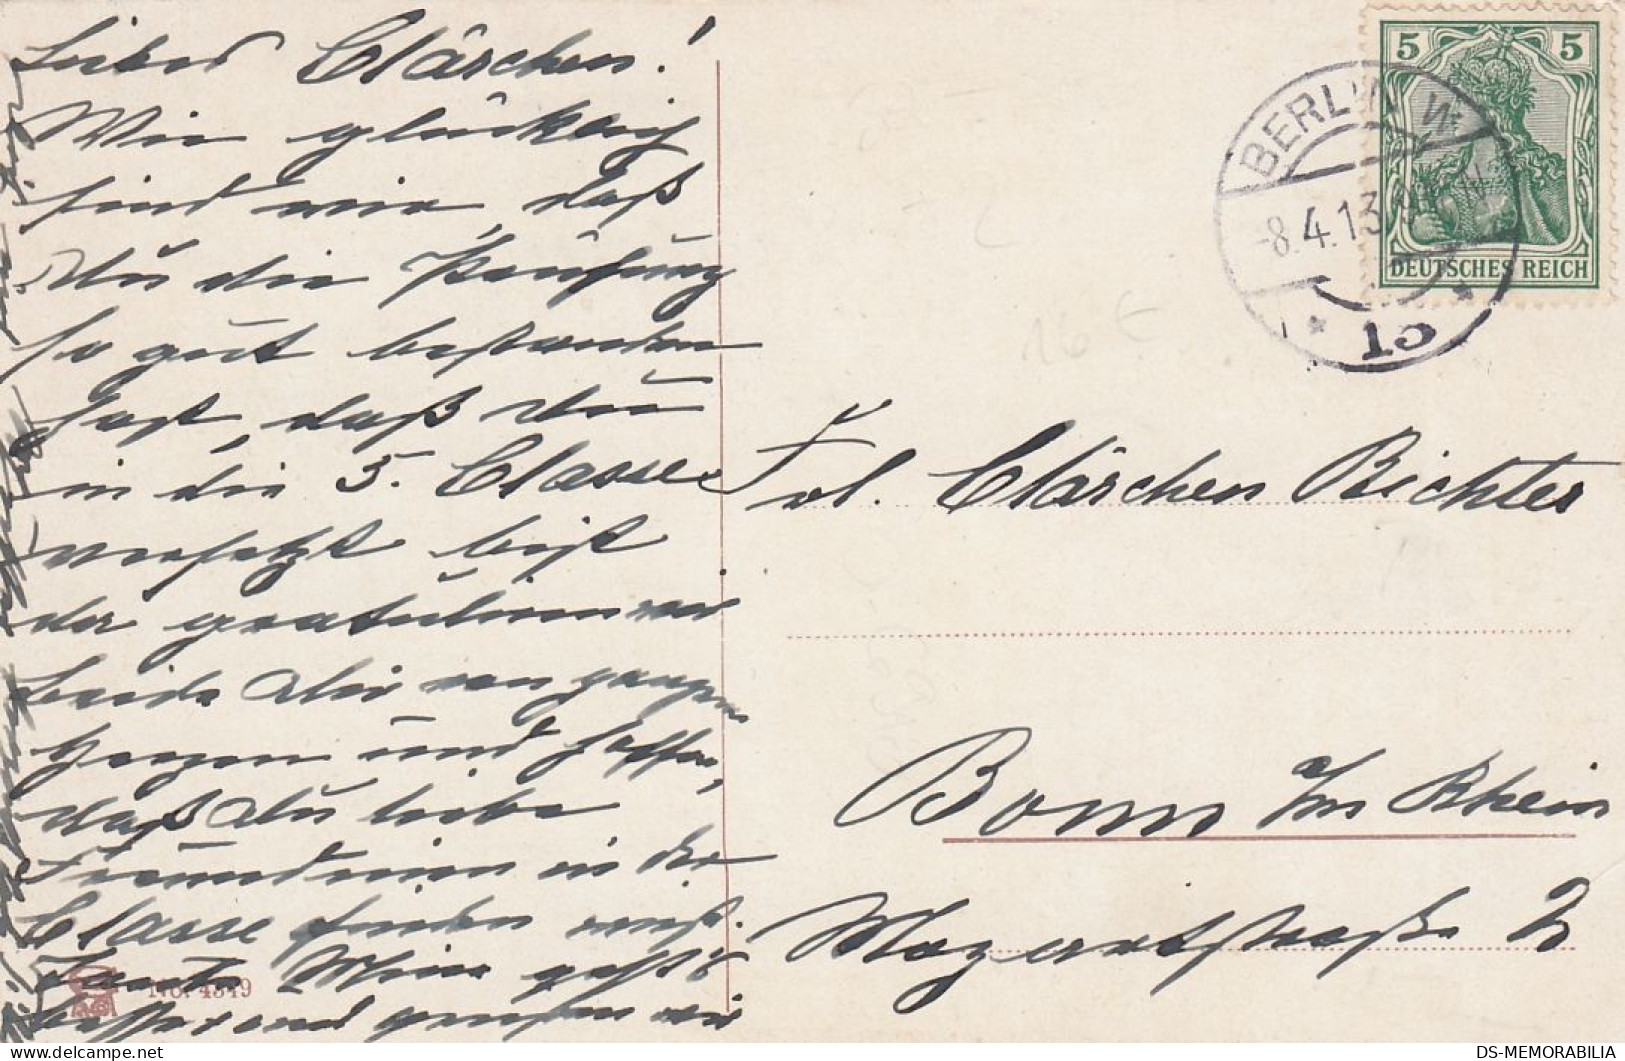 Liebes Clärchen!
Wie glücklich
sind wir, daß
Du die Prüfung
so gut bestanden
hast, daß Du
in die 5. Classe
versetzt bist
der gratulieren wir
beide Dir von ganzem
Herzen und hoffen,
daß Du liebe
Freundinnen in der
Classe finden wirst.
Tante geht's
besser und grüßen wir
No. 4349
5 5
DEUTSCHES REICH
BERLIN W.
-8.4.13
* 15 *
Frl. Clärchen Richter
Bonn am Rhein
Mozartstraße 2
DS-MEMORABILIA